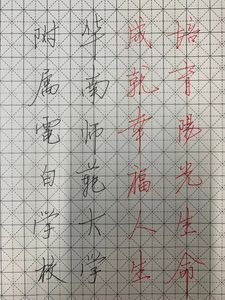 培育陽光生命
成就幸福人生
华南师範大学
附属電白学校